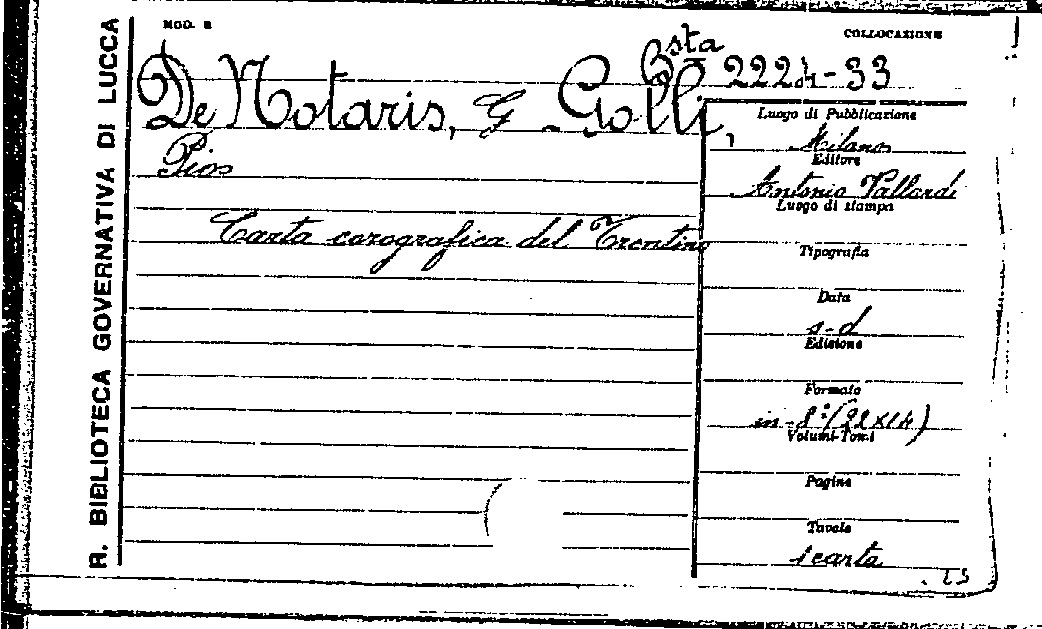 R. BIBLIOTECA GOVERNATIVA DI LUCCA
MOD. B
COLLOCAZIONE
Bsta 2224-33
De Notaris, G - Golli,
Pios
Carta corografica del Trentino
Luogo di Pubblicazione
Milano
Editore
Antonio Vallardi
Luogo di stampa
Tipografia
Data
s-d
Edizione
Formato
in-8º (22x14)
Volumi-Tomi
Pagine
Tavole
1 carta